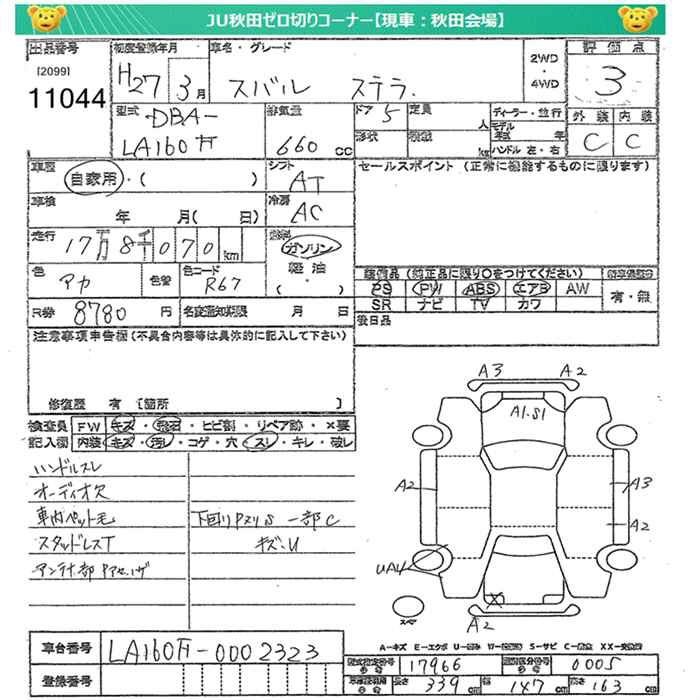 JU秋田ゼロ切りコーナー【現車：秋田会場】
出品番号 初度登録年月 車名・グレード 2WD・4WD 評価点
[2099]
11044
H27 3月 スバル ステラ. 3
型式 排気量 ドア 定員 人 ディーラー・並行 外装 内装
DBA-
LA160F 660 cc 5 形状 積載 kg ハンドル 左・右 C C
車歴 自家用・( ) シフト AT セールスポイント (正常に機能するものに限ります)
車検 年 月( 日) 冷房 AC
走行 17万8千070km 燃料 ガソリン・軽油・( )
色 アカ 色替 色コード R67 装備品 (純正品に限り○をつけてください)
PS PW ABS エアB AW 有・無
SR ナビ TV カワ
R券 8780 円 名変通知期限 月 日 後日品
注意事項申告欄(不具合内容等は具体的に記入して下さい)
修復歴 有 [箇所 ]
検査員 FW キズ・飛石・ヒビ割・リペア跡・×要
記入欄 内装 キズ・汚レ・コゲ・穴・スレ・キレ・破レ
ハンドルスレ
オーディオ欠
車内ペット毛 下回りPスリS 一部C
スタッドレスT キズ・U
A3 A2
A1・S1
A2 A3
A2
UA4
X
A2
スペア
A-キズ E-エクボ U-凹み S-サビ C-腐食 XX-交換済
車台番号 LA160F-0002323
登録番号
型式指定番号 17966 類別区分番号 0005
長さ 339 cm 幅 147 cm 高さ 163 cm